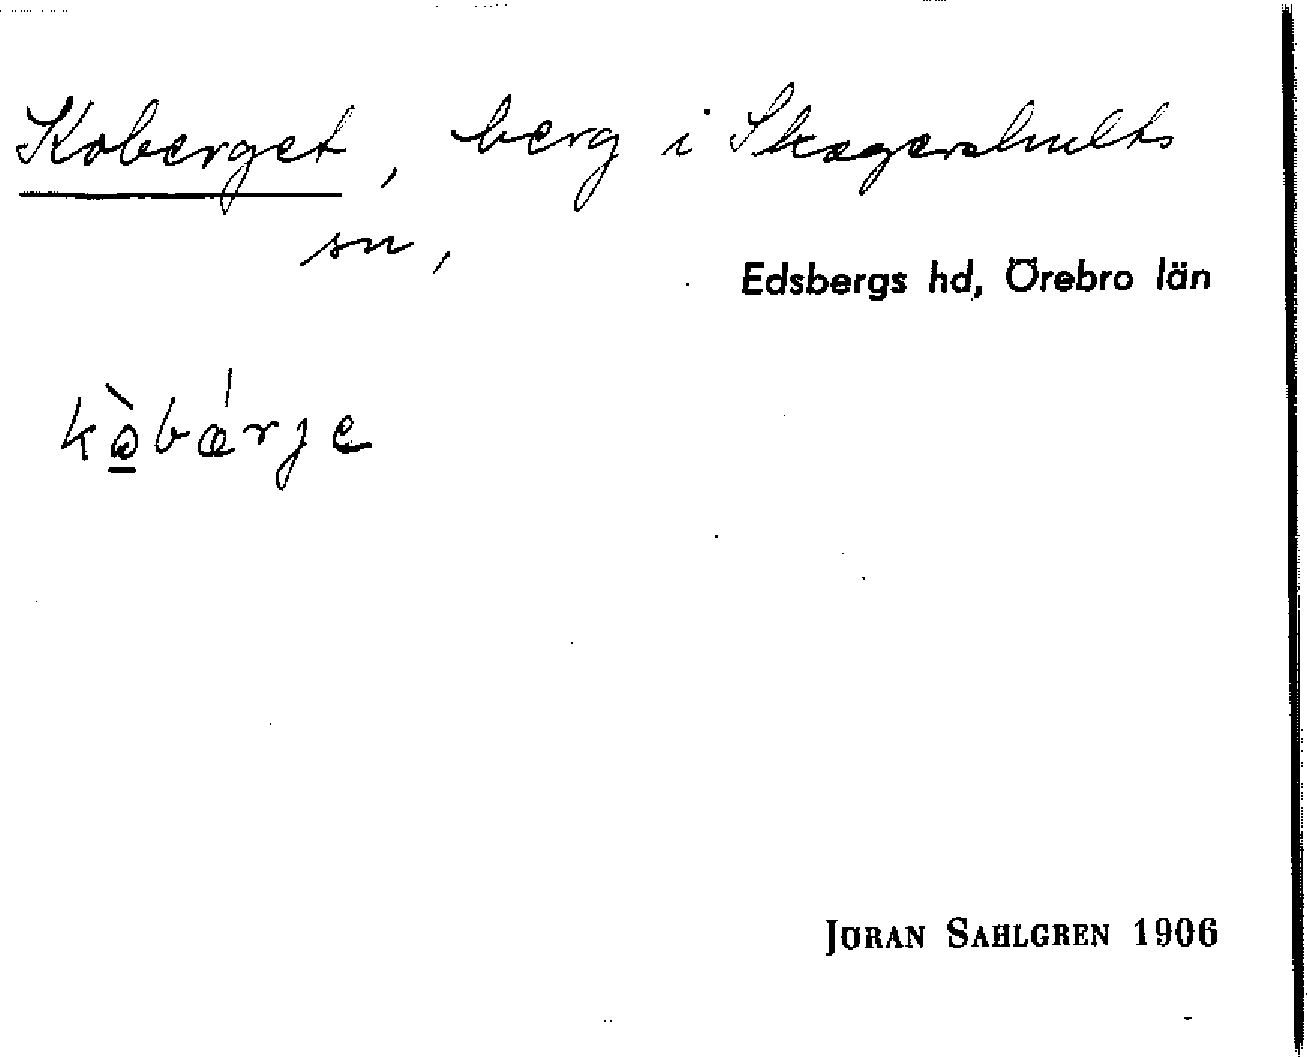 Koberget, berg i Skagershults
sn,
Edsbergs hd, Örebro län
kòbǽrje
JÖRAN SAHLGREN 1906